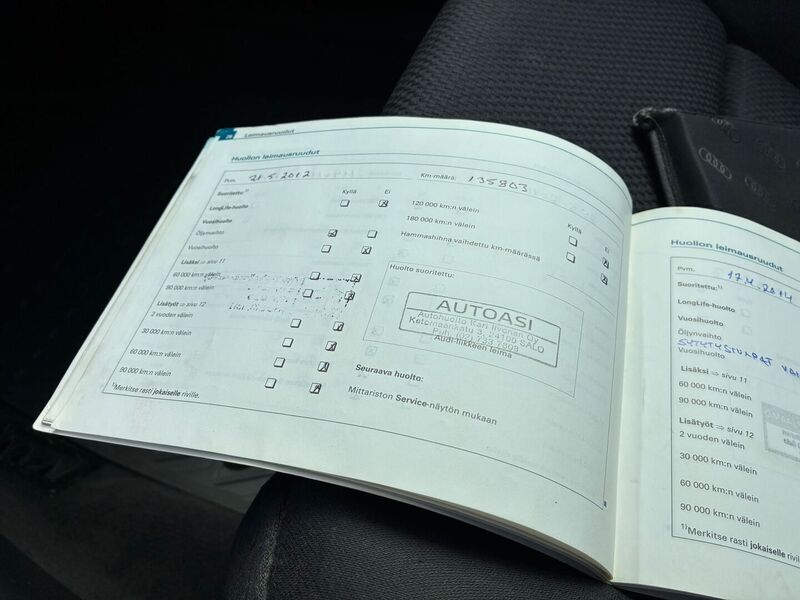 26 Leimausruudut
Huollon leimausruudut
Pvm. 21.5.2012
Km-määrä: 135803
Suoritettu:¹⁾
Kyllä Ei
LongLife-huolto
Vuosihuolto
Öljynvaihto
Vuosihuolto
Lisäksi ⇒ sivu 11
60 000 km:n välein
90 000 km:n välein
Lisätyöt ⇒ sivu 12
2 vuoden välein
30 000 km:n välein
60 000 km:n välein
90 000 km:n välein
¹⁾Merkitse rasti jokaiselle riville.
120 000 km:n välein
180 000 km:n välein
Kyllä Ei
Hammashihna vaihdettu km-määrässä
Huolto suoritettu:
AUTOASI
Autohuolto Kari Iivonen Oy
Ketonaankatu 3, 24100 SALO
Puh. (02) 733 7808
Audi-liikkeen leima
Seuraava huolto:
Mittariston Service-näytön mukaan
Huollon leimausruudut
Pvm. 17.4.2014
Suoritettu:¹⁾
LongLife-huolto
Vuosihuolto
Öljynvaihto
SYTYTYSTULPAT
Vuosihuolto
Lisäksi ⇒ sivu 11
60 000 km:n välein
90 000 km:n välein
Lisätyöt ⇒ sivu 12
2 vuoden välein
30 000 km:n välein
60 000 km:n välein
90 000 km:n välein
¹⁾Merkitse rasti jokaiselle riville.